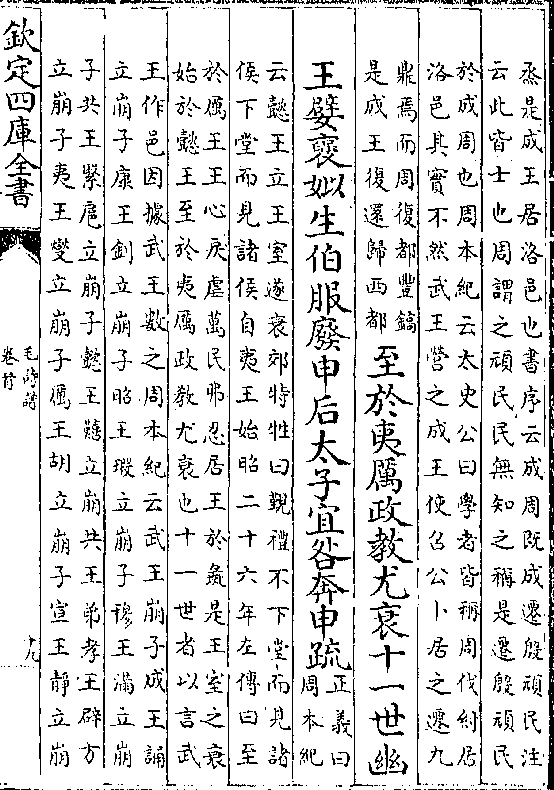 烝是成王居洛邑也書序云成周既成遷殷頑民注
云此皆士也周謂之頑民民無知之稱是遷殷頑民
於成周也周本紀云太史公曰學者皆稱周伐紂居
洛邑其實不然武王營之成王使召公卜居之遷九
鼎焉而周復都豐鎬
是成王復還歸西都
至於夷厲政教尤衰十一世幽
王嬖襃姒生伯服廢申后太子宜咎奔申疏
正義曰
周本紀
云懿王立王室遂衰郊特牲曰覲禮不下堂而見諸
侯下堂而見諸侯自夷王始昭二十六年左傳曰至
於厲王王心戾虐萬民弗忍居王於彘是王室之衰
始於懿王至於夷厲政教尤衰也十一世者以言武
王作邑因據武王數之周本紀云武王崩子成王誦
立崩子康王釗立崩子昭王瑕立崩子穆王滿立崩
子共王繄扈立崩子懿王囏立崩共王弟孝王辟方
立崩子夷王燮立崩子厲王胡立崩子宣王靜立崩
欽定四庫全書
毛詩譜
卷首
十九